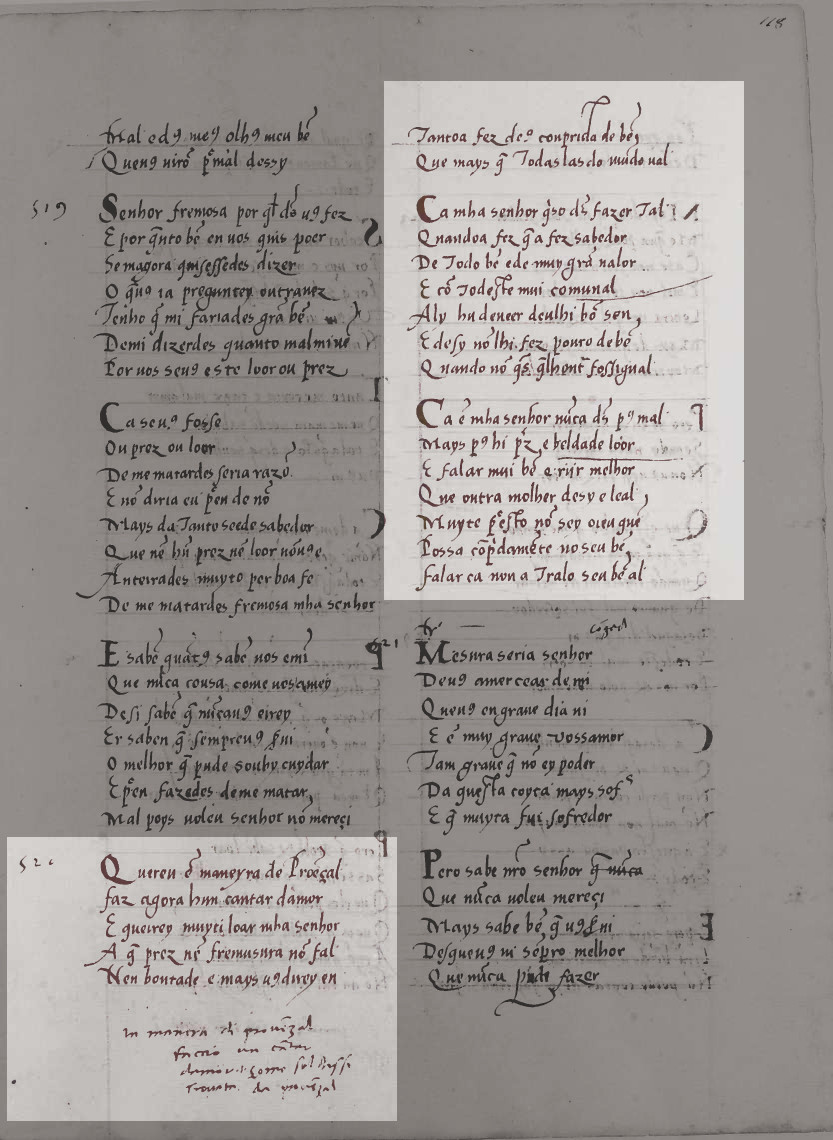 118
Mal e dꝯ meꝯ olhꝯ meu bẽ
Quenꝯ uirõ p̃ mal dessy
519
Senhor fremosa por q̃l dꝯ uꝯ fez
E por q̃nto bẽ en uos quis poer
Se magora quisessedes dizer
O q̃uꝯ ia preguntey outra uez
Tenho q̃ mi fariades grã bẽ
Demi dizerdes quanto mal mi uẽ
Por uos seuꝯ este loor ou prez
Ca seuꝯ fosse
Ou prez ou loor
De me matardes seria razõ
E nõ diria eu p̃en de nõ
Mays da Tanto seede sabedor
Que nẽ hũ prez nẽ loor nõuꝯ e
Ante irades muyto per boa fe
De me matardes fremosa mha senhor
E sabẽ quãtꝯ sabẽ uos e mĩ
Que nũca cousa come uos amey
Desi sabẽ q̃ nũcauꝯ eirey
Er saben q̃ sempreuꝯ serui
O melhor q̃ pude souby cuydar
E p̃en fazedes de me matar
Mal poys uoleu senhor nõ mereçi
520
Quereu ẽ maneyra de Proẽçal
faz agora hun cantar damor
E querrey muyti loar mha senhor
A q̃ prez nẽ fremusura nõ fal
Nen bontade e mays uꝯ direy en
in manera di provẽzal
faccio un cãtar
Tantoa fez deꝯ comprida de bẽ
Que mays q̃ Todas las do mũdo ual
Ca mha senhor q̃so ds̃ fazer Tal
Quandoa fez q̃ a fez sabedor
De Todo bẽ e de muy grã ualor
E cõ Todeste mui comunal
Aly hu deueer deulhi bõ sen
E desy nõ lhi fez pouco de bẽ
Quando nõ q̃s q̃lhout̃ fossigual
Ca ẽ mha senhor nũca ds̃ pꝯ mal
Mays pꝯ hi pr̃z e beldade loor
E falar mui bẽ e rijr melhor
Que outra molher desy e leal
Muyte p̃ esto nõ sey oieu quẽ
Possa cõpridamẽte no seu bẽ
falar ca non a Tralo seu bẽ al
521
Mesura seria senhor
Deuꝯ amercear de mi
Queuꝯ en graue dia ui
E ẽ muy graue vossamor
Tam graue q̃ nõ ey poder
Da questa coyta mays sofrer
E q̃ muyta fui sofredor
Pero sabe nr̃o senhor q̃ nũca
Que nũca uoleu mereçi
Mays sabe bẽ q̃ uꝯ serui
Desqueuꝯ ui sẽpro melhor
Que nũca pude fazer